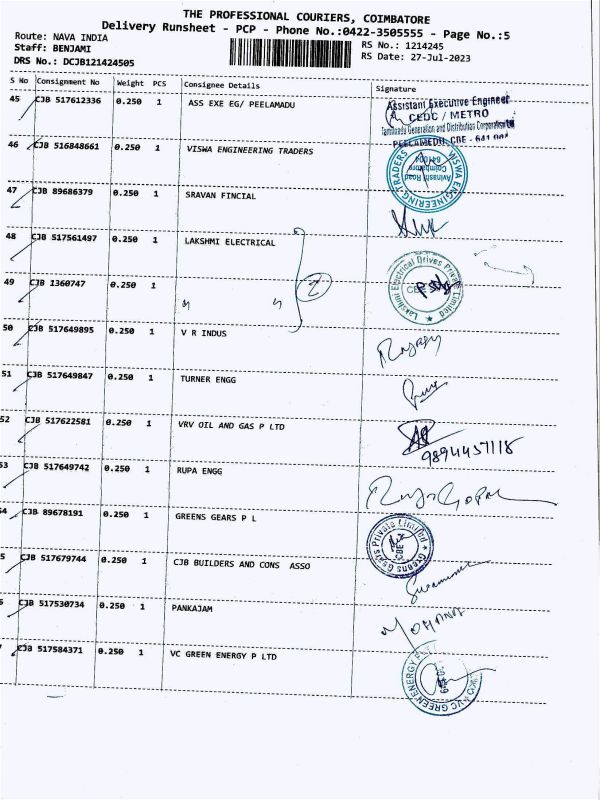 THE PROFESSIONAL COURIERS, COIMBATORE
Delivery Runsheet - PCP - Phone No.:0422-3505555 - Page No.:5
Route: NAVA INDIA
RS No.: 1214245
Staff: BENJAMI
RS Date: 27-Jul-2023
DRS No.: DCJB121424505
S No Consignment No Weight PCS Consignee Details Signature
45 CJB 517612336 0.250 1 ASS EXE EG/ PEELAMADU
Assistant Executive Engineer
CEDC / METRO
Tamilnadu Generation and Distribution Corporation Ltd
PEELAMEDU, CBE - 641 004
46 CJB 516848661 0.250 1 VISWA ENGINEERING TRADERS
VISWA ENGINEERING TRADERS
Avinashi Road
Coimbatore
47 CJB 89686379 0.250 1 SRAVAN FINCIAL
48 CJB 517561497 0.250 1 LAKSHMI ELECTRICAL
Lakshmi Electrical Drives Private Limited
2
49 CJB 1360747 0.250 1 " "
50 CJB 517649895 0.250 1 V R INDUS
51 CJB 517649847 0.250 1 TURNER ENGG
52 CJB 517622581 0.250 1 VRV OIL AND GAS P LTD
9894457118
53 CJB 517649742 0.250 1 RUPA ENGG
54 CJB 89678191 0.250 1 GREENS GEARS P L
Greens Gears Private Limited
5 CJB 517679744 0.250 1 CJB BUILDERS AND CONS ASSO
CJB 517530734 0.250 1 PANKAJAM
MOHANA
CJB 517584371 0.250 1 VC GREEN ENERGY P LTD
VC GREEN ENERGY